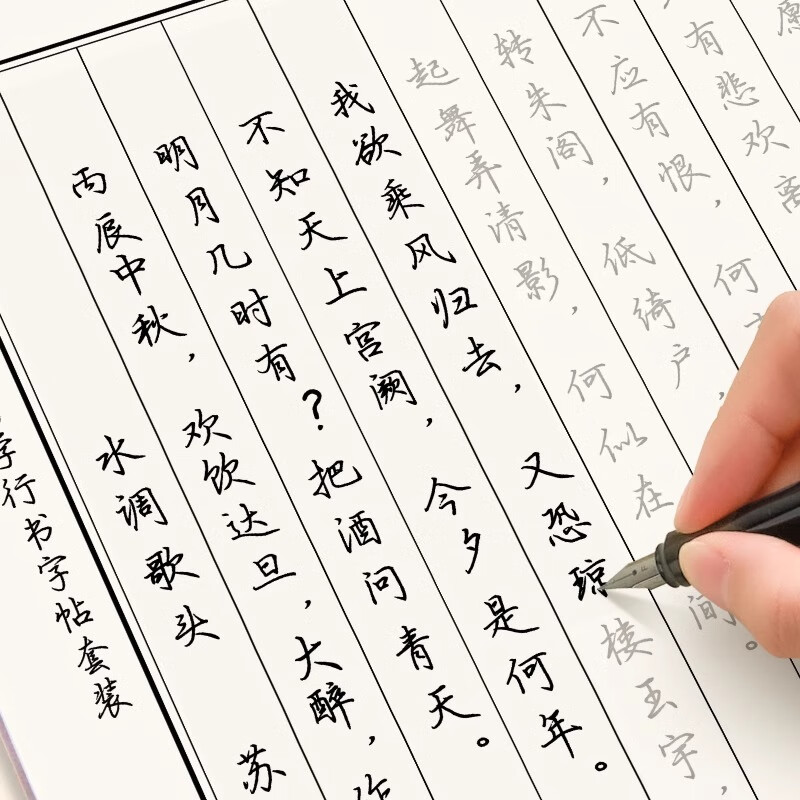 字行书字帖套装
水调歌头 苏
丙辰中秋，欢饮达旦，大醉，作
明月几时有？把酒问青天。
不知天上宫阙，今夕是何年。
我欲乘风归去，又恐琼楼玉宇，
起舞弄清影，何似在间。
转朱阁，低绮户，
不应有恨，何
有悲欢离
愿